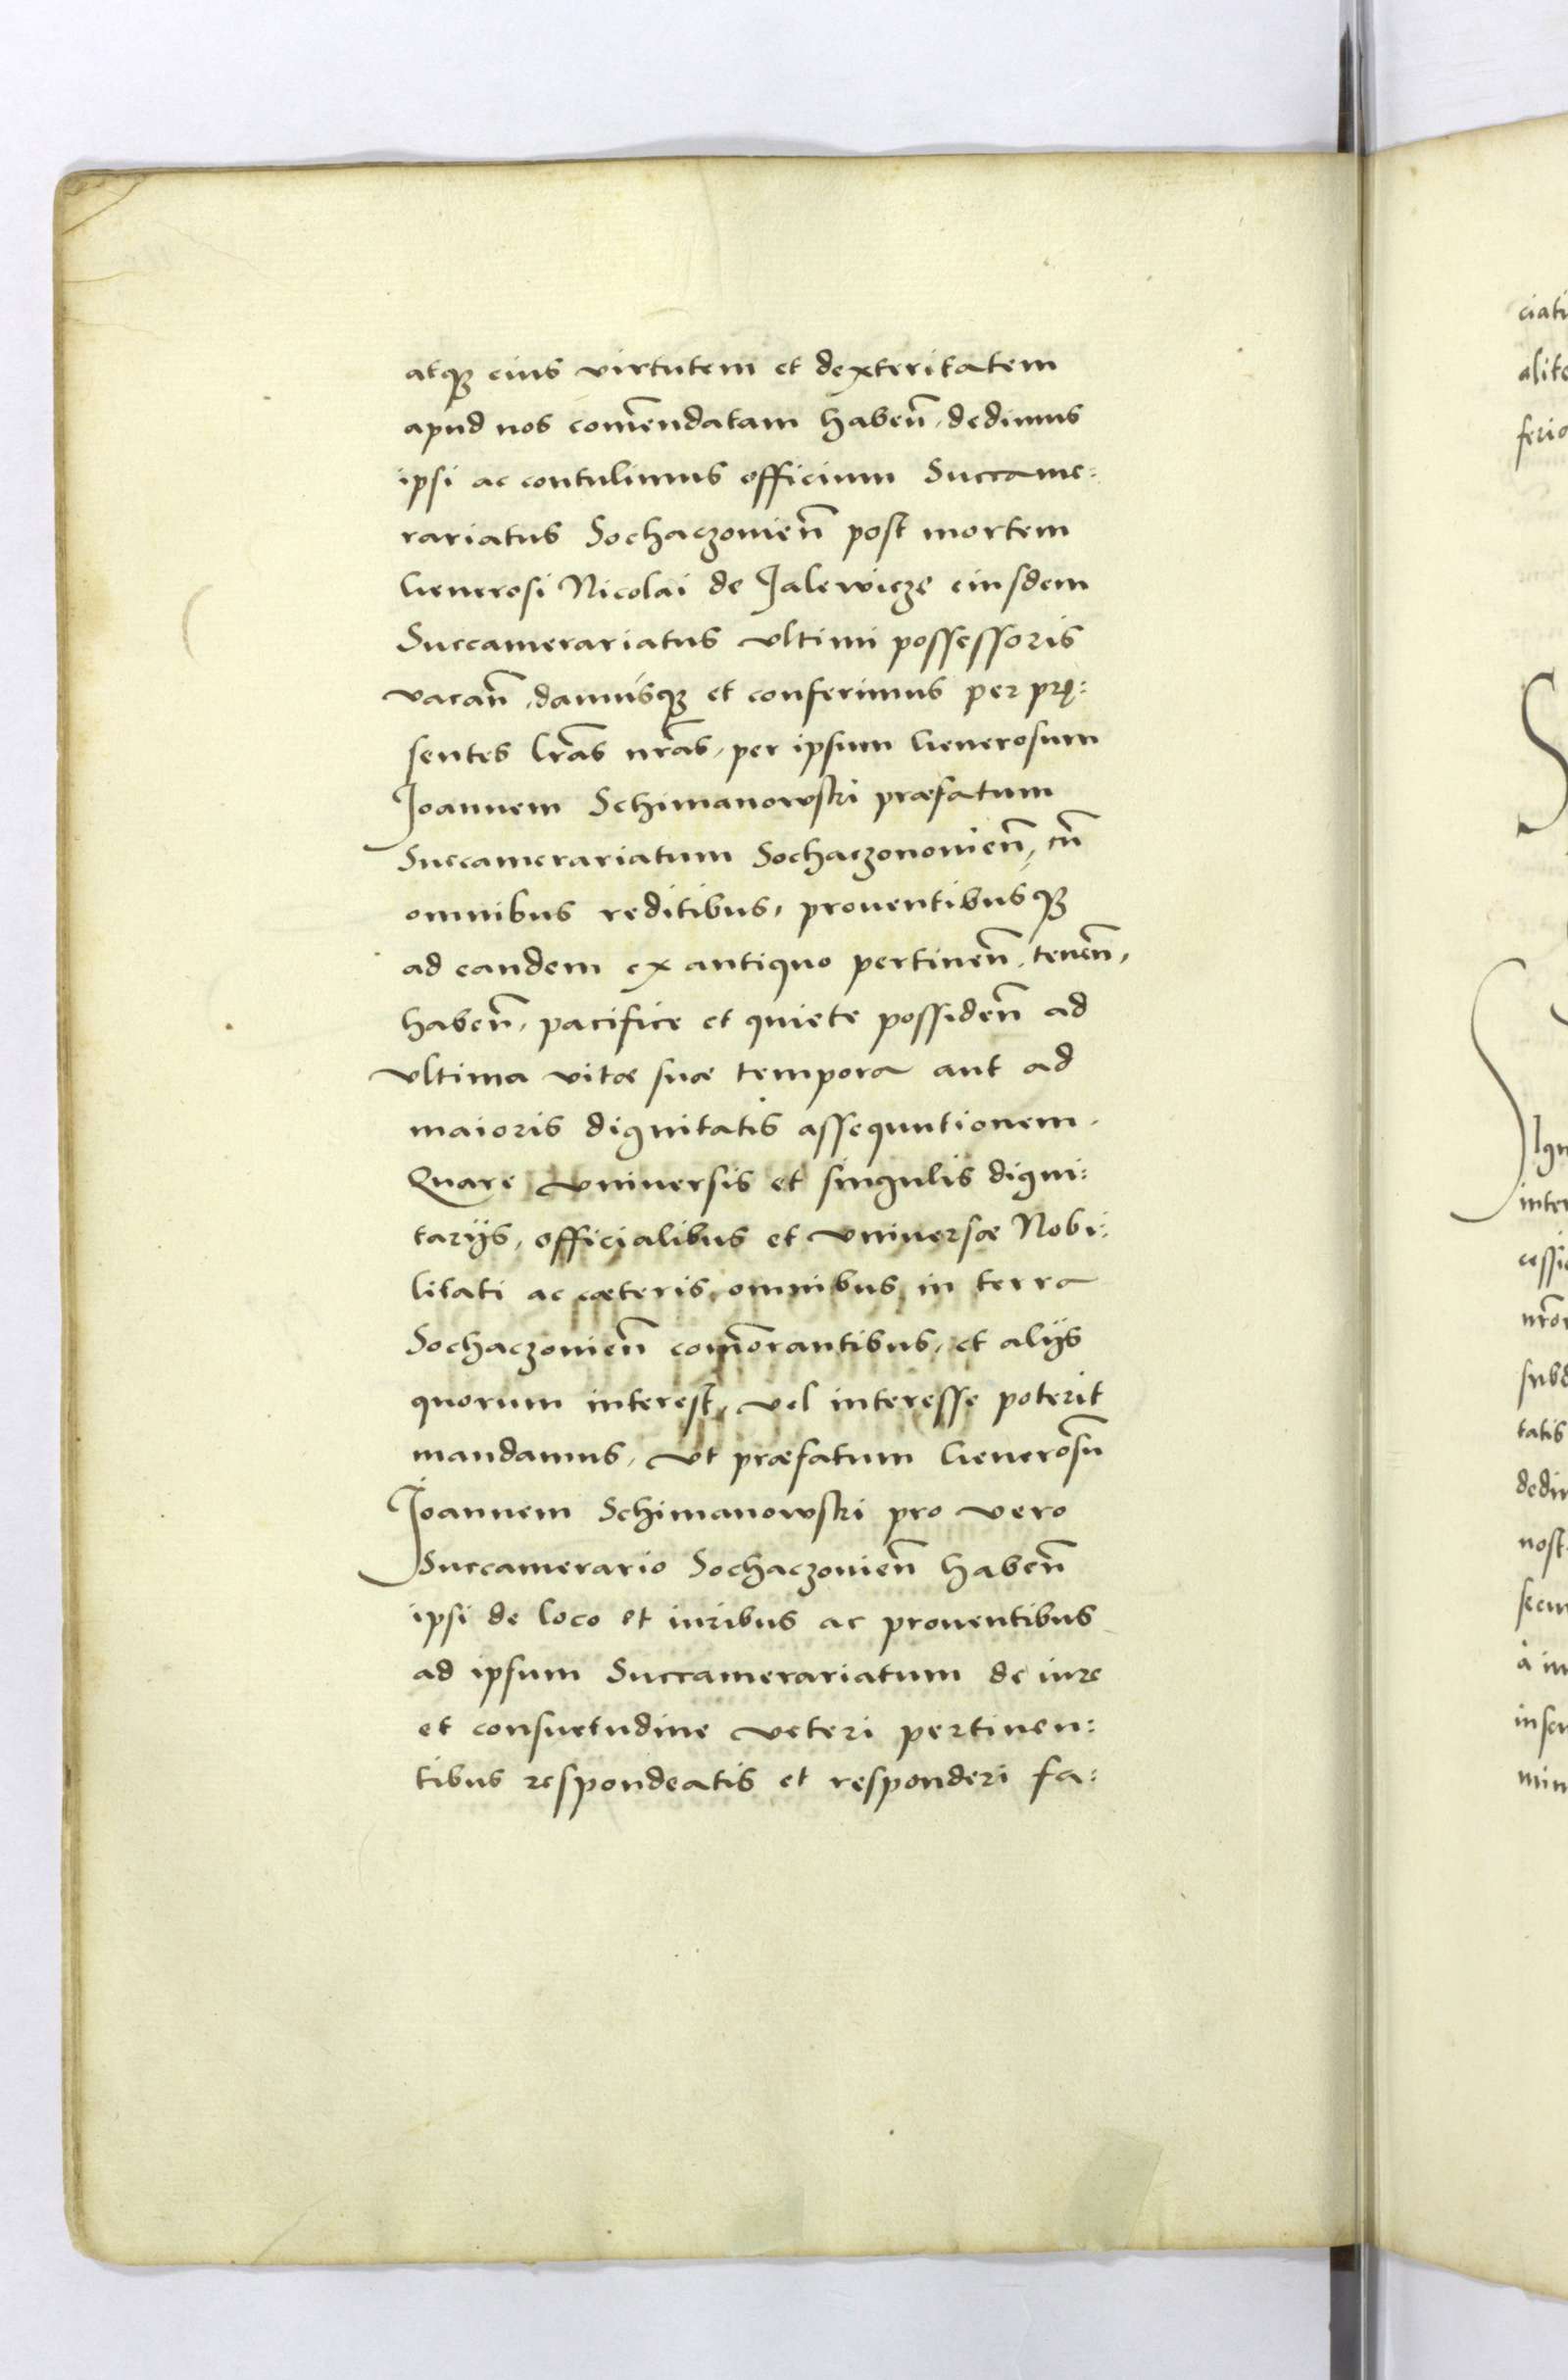 atq₃ eius virtutem et dexteritatem
apud nos com̄endatam haben̄, dedimus
ipsi ac contulimus officium Succame:
rariatus Sochaczouien̄ post mortem
Generosi Nicolai de Jalewicze eiusdem
Succamerariatus vltimi possessoris
vacan̄, damusq₃ et conferimus per prę:
sentes lr̄as nr̄as, per ipsum Generosum
Joannem Schimanowski præfatum
Succamerariatum Sochaczonouien̄, cū
omnibus reditibus, prouentibusq₃
ad eandem ex antiquo pertinen̄, tenen̄,
haben̄, pacifice et quiete possiden̄ ad
vltima vitæ suæ tempora aut ad
maioris dignitatis assequutionem.
Quare vniuersis et singulis digni:
tarijs, officialibus et vniuersæ Nobi:
litati ac cæteris omnibus in terra
Sochaczouien̄ com̄orantibus, et alijs
quorum interest, vel interesse poterit
mandamus, vt præfatum Generosū
Joannem Schimanowski pro vero
Succamerario Sochaczouien̄ haben̄
ipsi de loco et iuribus ac prouentibus
ad ipsum Succamerariatum de iure
et consuetudine veteri pertinen:
tibus respondeatis et responderi fa:
ciati
alite
ferio
inter
cessi
tatis
nost